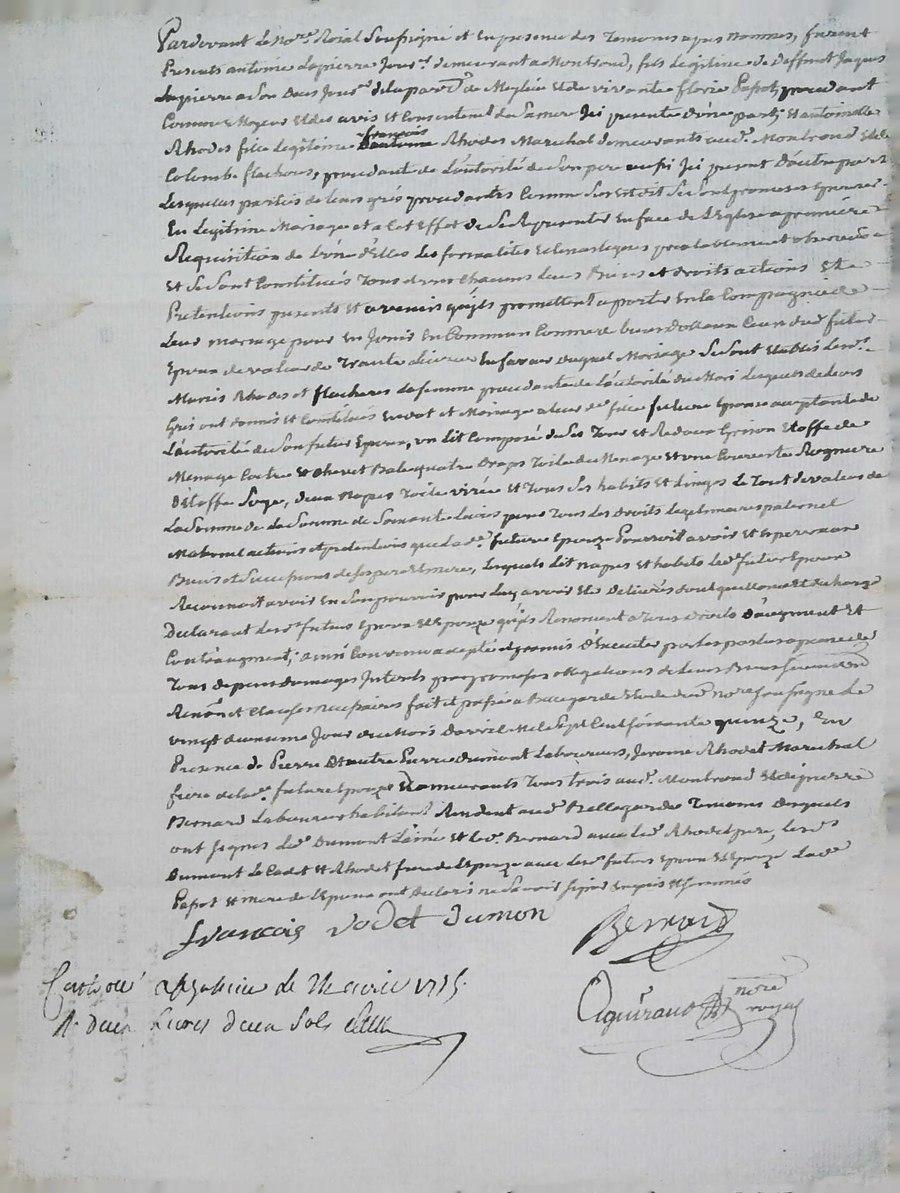 Pardevant Le no.re Roial Soussigné et En presence des Temoins apres nommes, furent
Presents antoine Lapierre Jour.r demeurant a Montrond, fils Legitime de deffunt Jaques
Lapierre a Son Deces Jour.r de la par.e de Et de vivante florie Papot, procedant
Comme Majeur Et des avis et Consentem.t de Sa mere Ici presente D'une part; Et antoinette
Rhodes fille Legitime françois Rhodes Marechal demeurants aud. Montrond Et de
Colombe flachéres, procedant de L'autorité de Son pere aussi Ici present D'autre part
Lesquelles parties de leurs grés procedantes Comme Sus est dit Se Sont promeses Epouser
En Legitime Mariage et a Cet Effet de Se Representer En face de L'Eglise a premiére
Requisition de L'une d'Elles Les formalités Eclesiastiques prealablement observées
Et Se Sont Constitués Tous deux Chacuns Leurs Biens et droits actions Et
Pretentions presents Et avenirs qu'ils promettent aporter En la Compagnie de
Leur mariage pour En Jouir En Commun Comme de biens dottaux Ceux du d. futur
Epoux de valeur de Trente Livres En faveur Duquel Mariage Se Sont Etablis Les d.
Mariés Rhodes et flacheres Sa femme procedante de L'autorité du Mari Lesquels de Leurs
Grés ont donné et Constitués En dot et Mariage a Leur d.e fille future Epouse acceptante de
L'autorité de Son futur Epoux, un Lit Composé de Ses Tour et Rideaux Etoffe de
Menage Coitre et Chevet Bale quatre Draps Toile du Menage et une Couverte
D'Etoffe Serge, deux Napes Toile et Tous Ses habits Et Linges Le Tout de valeur de
La Somme de La Somme de Soixante Livres pour Tous Les Droits Legitimaires paternel
Maternel actions et pretentions que La d.e future Epouze Pourroit avoir Et Esperer aux
Biens et Successions de Ses pere Et mere, Lesquels Lit napes et habits Led. futur Epoux
Reconnoit avoir En Son pouvoir pour Luy avoir Eté Delivrés dont quittance Et decharge
Declarant Les d. futurs Epoux Et Epouze qu'ils Renoncent a Tous Droits D'augment Et
Contraugment; ainsi Convenu accepté et promis D'Executer par Les parties a peine de
Tous Depens domages Interets par promesses obligations de Leurs Biens
Renon.on et Clauses necessaires fait et passé a Bellegarde Etude du d. notre Soussigné Le
vingt deuxieme Jour du Mois D'avril Mil Sept Cent Soixante quinze, En
Presence de Pierre Et autre Pierre Dumont Laboureurs, Jerome Rhodet Marechal
frere de la d.e future Epouze Demeurants Tous trois aud. Montrond Et de pierre
Bernard Laboureur habitant Resident aud. Bellegarde Temoins Desquels
ont Signés Led. Dumont L'ainé Et Led. Bernard avec Led. Rhodet pere, Les d.
Dumont Le Cadet Et Rhodet frere de L'Epouze avec Les d. futurs Epoux Et Epouze La d.e
Papot Et mere de L'Epoux ont Declarés ne Savoir Signer Enquis Et Sommés
françois rodet Dumon Bernard
Controlé a le 24 avril 1775.
R. deux Livres deux Sols notre
royal